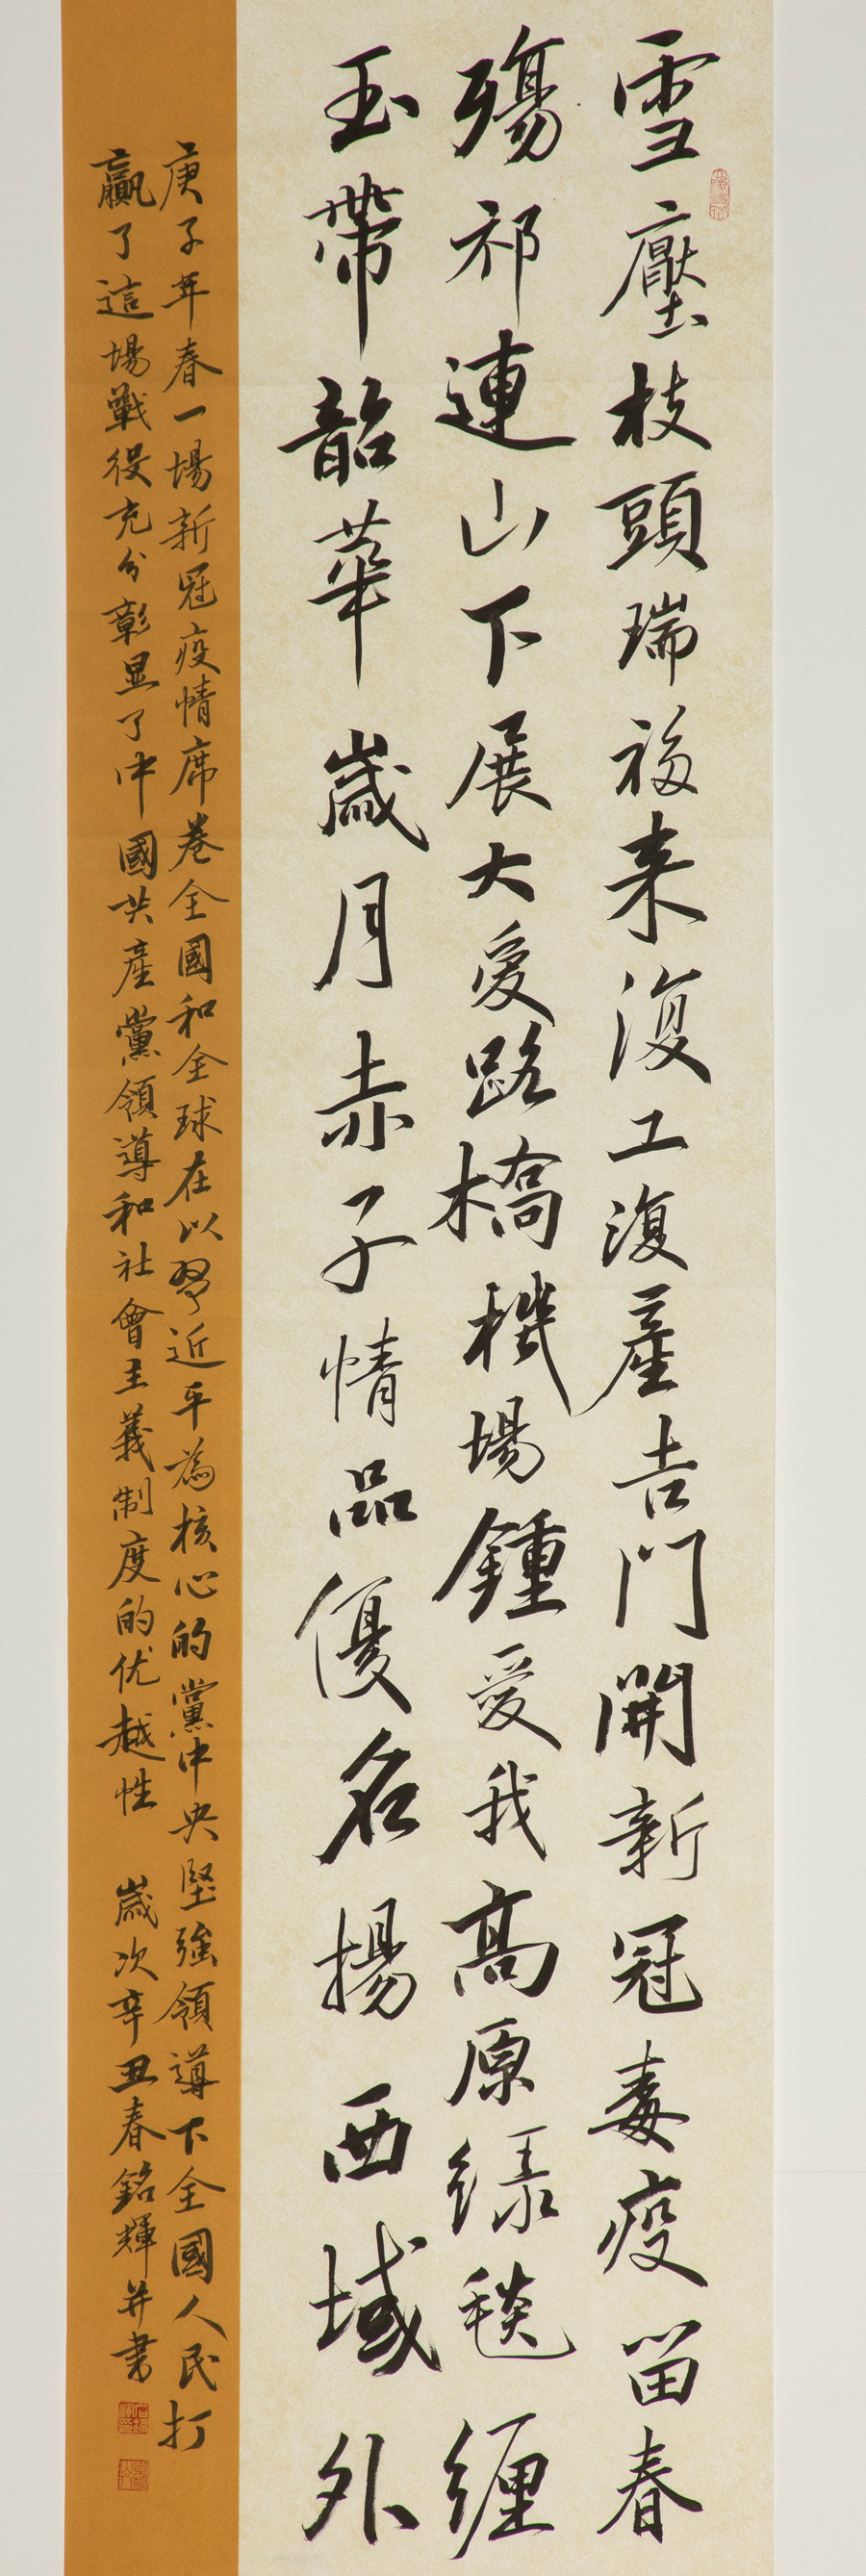 雪壓枝頭瑞祲来復工復產吉門開新冠毒疫留春
殤祁連山下展大爱路橋機場鍾爱我高原绿毯缠
玉帶韶華歲月赤子情品優名揚西域外
庚子年春一場新冠疫情席卷全國和全球在以習近平為核心的黨中央堅強領導下全國人民打
贏了這場戰役充分彰显了中國共產黨領導和社會主義制度的优越性 歲次辛丑春銘輝并書